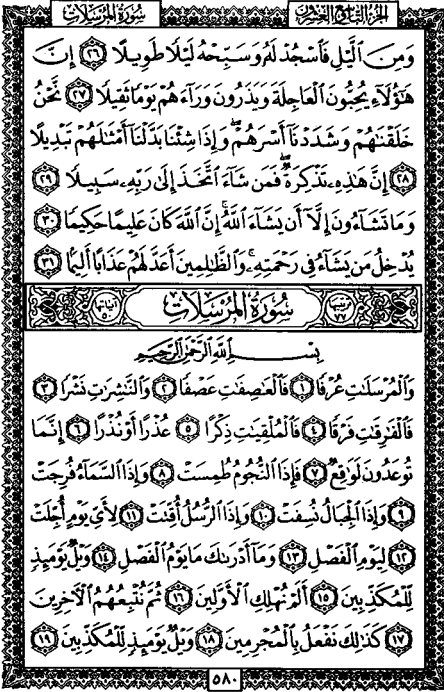 سُورَةُ المُرْسَلَات
الجُزءُ التَّاسِعُ وَالعِشْرُونَ
وَمِنَ ٱلَّيْلِ فَٱسْجُدْ لَهُۥ وَسَبِّحْهُ لَيْلًا طَوِيلًا ٢٦ إِنَّ
هَٰٓؤُلَآءِ يُحِبُّونَ ٱلْعَاجِلَةَ وَيَذَرُونَ وَرَآءَهُمْ يَوْمًا ثَقِيلًا ٢٧ نَّحْنُ
خَلَقْنَٰهُمْ وَشَدَدْنَآ أَسْرَهُمْ ۖ وَإِذَا شِئْنَا بَدَّلْنَآ أَمْثَٰلَهُمْ تَبْدِيلًا
٢٨ إِنَّ هَٰذِهِۦ تَذْكِرَةٌ ۖ فَمَن شَآءَ ٱتَّخَذَ إِلَىٰ رَبِّهِۦ سَبِيلًا ٢٩
وَمَا تَشَآءُونَ إِلَّآ أَن يَشَآءَ ٱللَّهُ ۚ إِنَّ ٱللَّهَ كَانَ عَلِيمًا حَكِيمًا ٣٠
يُدْخِلُ مَن يَشَآءُ فِى رَحْمَتِهِۦ ۚ وَٱلظَّٰلِمِينَ أَعَدَّ لَهُمْ عَذَابًا أَلِيمًا ٣١
ترتيبها ٧٧ سُورَةُ المُرْسَلَات آياتها ٥٠
بِسْمِ ٱللَّهِ ٱلرَّحْمَٰنِ ٱلرَّحِيمِ
وَٱلْمُرْسَلَٰتِ عُرْفًا ١ فَٱلْعَٰصِفَٰتِ عَصْفًا ٢ وَٱلنَّٰشِرَٰتِ نَشْرًا ٣
فَٱلْفَٰرِقَٰتِ فَرْقًا ٤ فَٱلْمُلْقِيَٰتِ ذِكْرًا ٥ عُذْرًا أَوْ نُذْرًا ٦ إِنَّمَا
تُوعَدُونَ لَوَٰقِعٌ ٧ فَإِذَا ٱلنُّجُومُ طُمِسَتْ ٨ وَإِذَا ٱلسَّمَآءُ فُرِجَتْ
٩ وَإِذَا ٱلْجِبَالُ نُسِفَتْ ١٠ وَإِذَا ٱلرُّسُلُ أُقِّتَتْ ١١ لِأَىِّ يَوْمٍ أُجِّلَتْ
١٢ لِيَوْمِ ٱلْفَصْلِ ١٣ وَمَآ أَدْرَىٰكَ مَا يَوْمُ ٱلْفَصْلِ ١٤ وَيْلٌ يَوْمَئِذٍ
لِّلْمُكَذِّبِينَ ١٥ أَلَمْ نُهْلِكِ ٱلْأَوَّلِينَ ١٦ ثُمَّ نُتْبِعُهُمُ ٱلْءَاخِرِينَ
١٧ كَذَٰلِكَ نَفْعَلُ بِٱلْمُجْرِمِينَ ١٨ وَيْلٌ يَوْمَئِذٍ لِّلْمُكَذِّبِينَ ١٩
٥٨٠